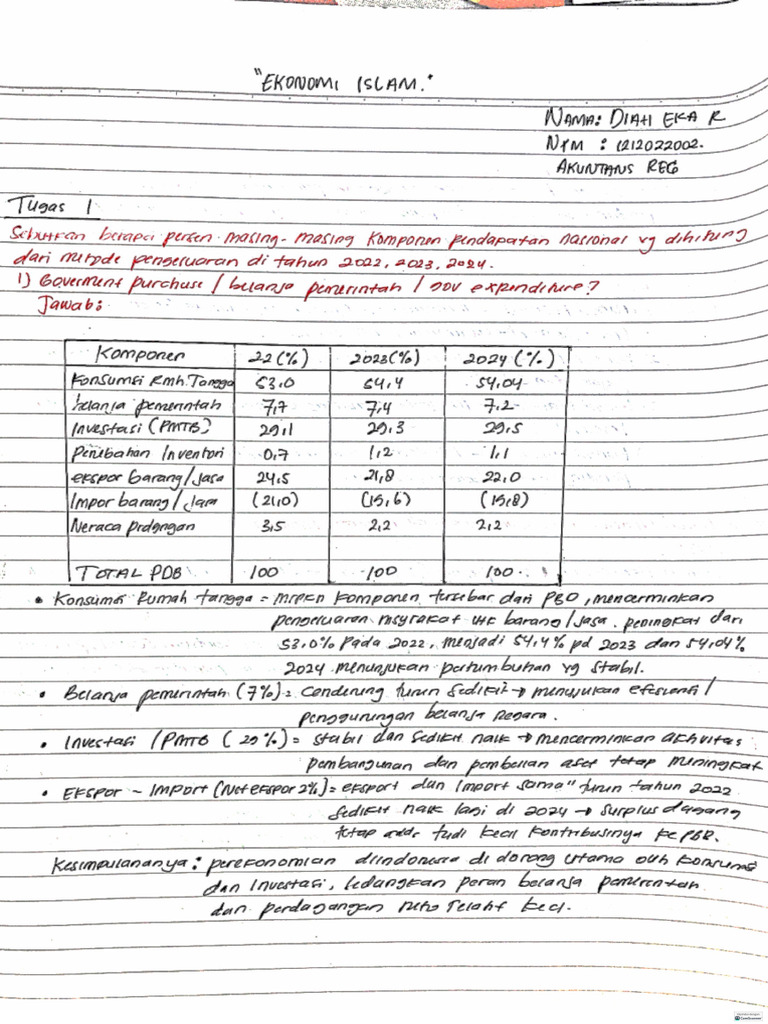 "EKONOMI ISLAM."
NAMA: DIAH EKA R
NPM : 1212022002.
AKUNTANS REG
Tugas 1
Sebutkan berapa persen masing-masing komponen pendapatan nasional yg dihitung
dari metode pengeluaran di tahun 2022, 2023, 2024.
1) Goverment purchase / belanja pemerintah / gov expenditure?
Jawab:
Komponen 22 (%) 2023 (%) 2024 (%)
Konsumsi Rmh. Tangga 53,0 54,4 54,04
belanja pemerintah 7,7 7,4 7,2
Investasi (PMTB) 29,1 29,3 29,5
Perubahan Inventori 0,7 1,2 1,1
ekspor barang/jasa 24,5 21,8 22,0
Impor barang/jasa (21,0) (19,6) (19,8)
Neraca prdgngan 3,5 2,2 2,2
TOTAL PDB 100 100 100
• Konsumsi Rumah tangga = mrpkn komponen tersebar dari PBD, mencerminkan
pengeluaran msyrakat utk barang/jasa. peningkat dari
53,0% pada 2022, menjadi 54,4% pd 2023 dan 54,04%
2024 menunjukan pertumbuhan yg stabil.
• Belanja pemerintah (7%) = Cenderung turun sedikit → menunjukan efesiensi /
penggurungan belanja negara.
• Investasi / PMTB (29%) = stabil dan sedikit naik → mencerminkan aktivitas
pembangunan dan pembelian aset tetap meningkat
• Ekspor - Import (Net ekspor 2%) = eksport dan import sama" turun tahun 2022
sedikit naik lagi di 2024 → surplus dagang
tetap ada, kecil kontribusinya ke PDB.
Kesimpulananya : perekonomian diindonesia di dorong utama oleh konsumsi
dan investasi, sedangkan peran belanja pemerintah
dan perdagangan neto relatif kecil.